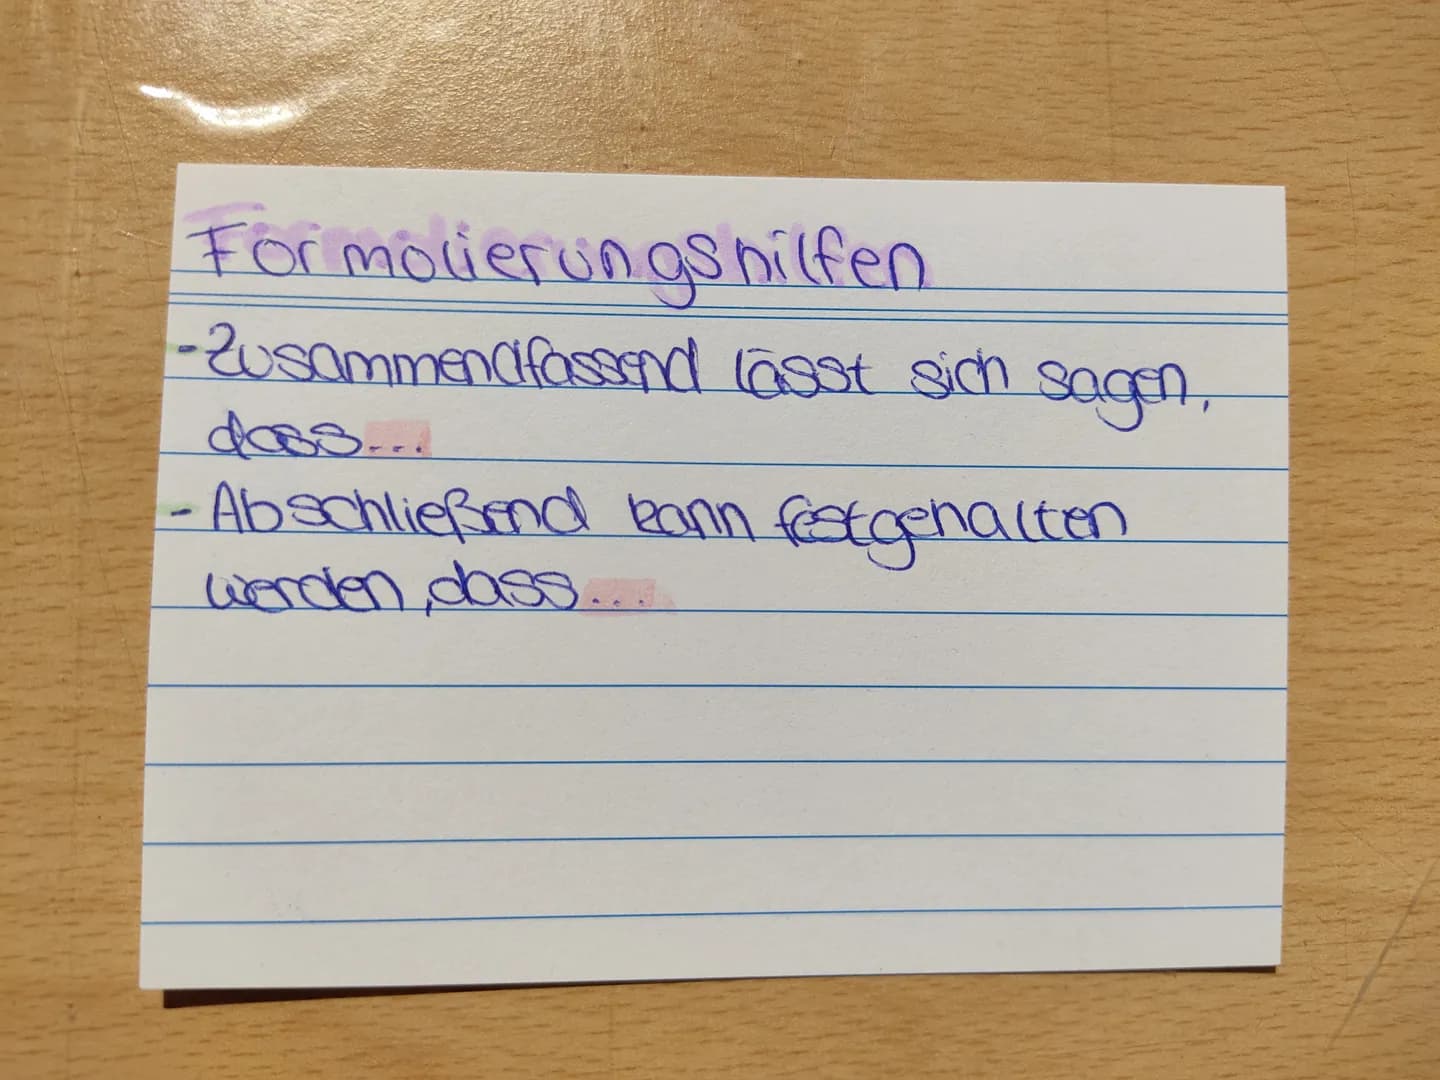 Formulierungshilfen
- Zusammendfassend lässt sich sagen,
dass...
- Abschließend kann festgehalten
werden, dass...